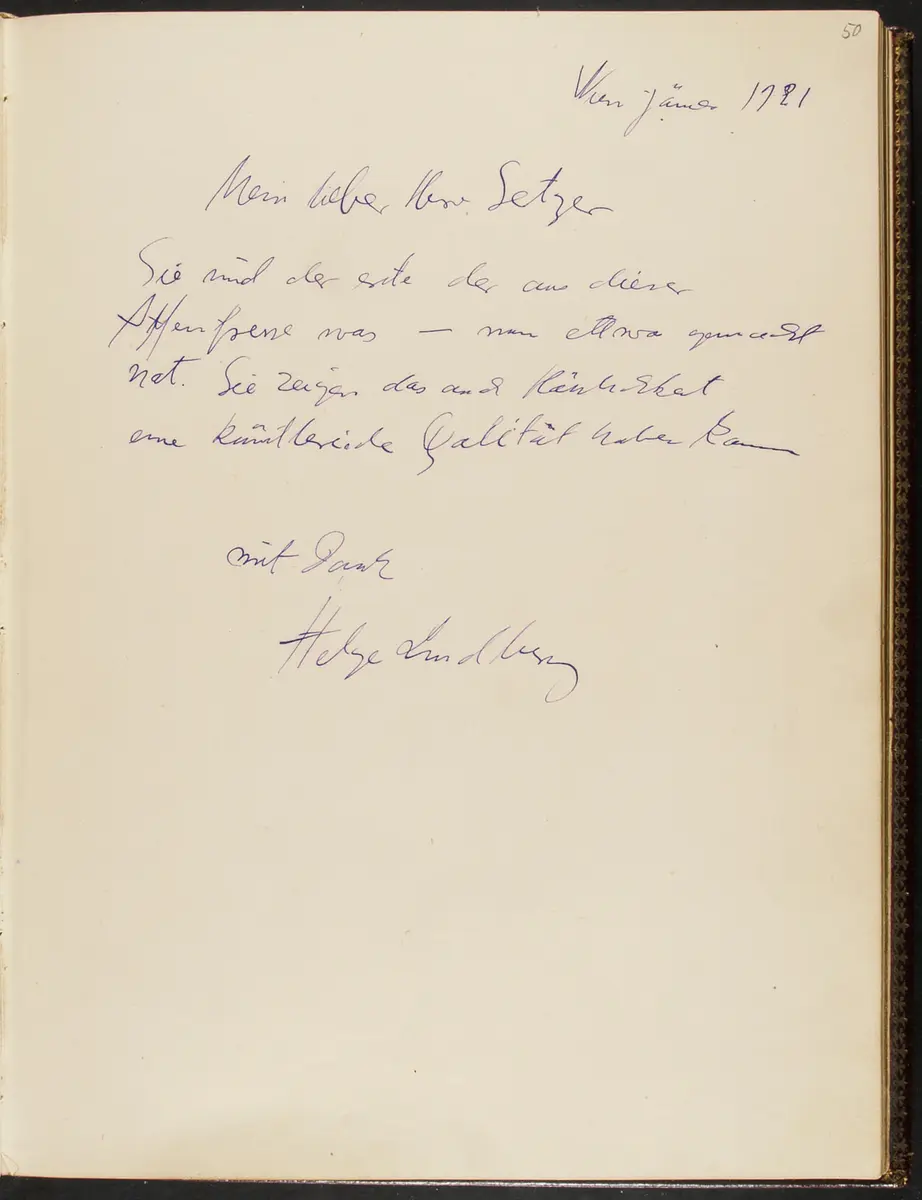 50
Wien jänner 1921
Mein lieber Herr Setzer
Sie sind der erste der aus dieser
Affenfresse was — nun ettwa gemacht
hat. Sie zeigen das auch Hässlichkeit
eine künstlerische Qalität haben kann
mit Dank
Helge Lindberg